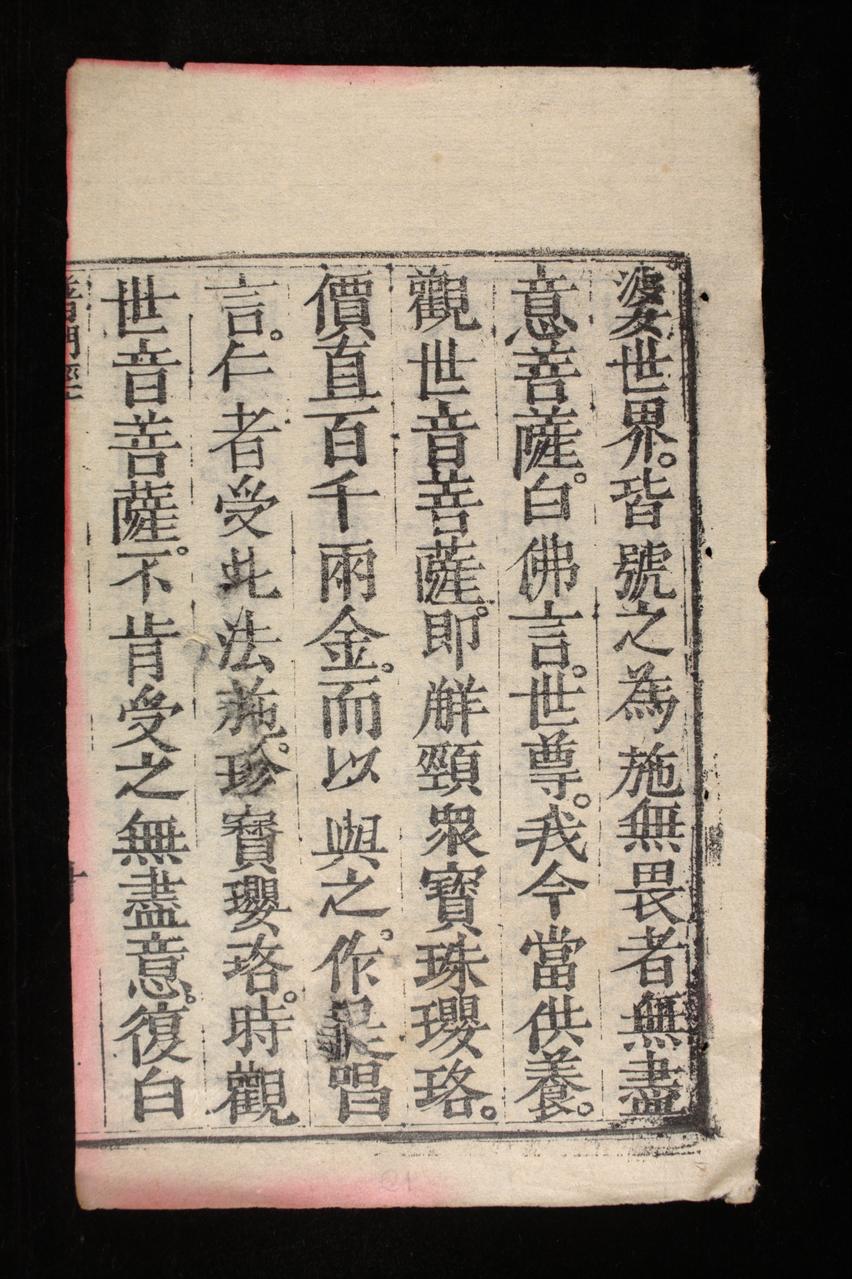 婆世界。皆號之為施無畏者無盡
意菩薩。白佛言。世尊。我今當供養。
觀世音菩薩。即解頸眾寶珠瓔珞。
價直百千兩金。而以與之。作是唱
言。仁者受此法施。珍寶瓔珞。時觀
世音菩薩。不肯受之無盡意。復白
普門經